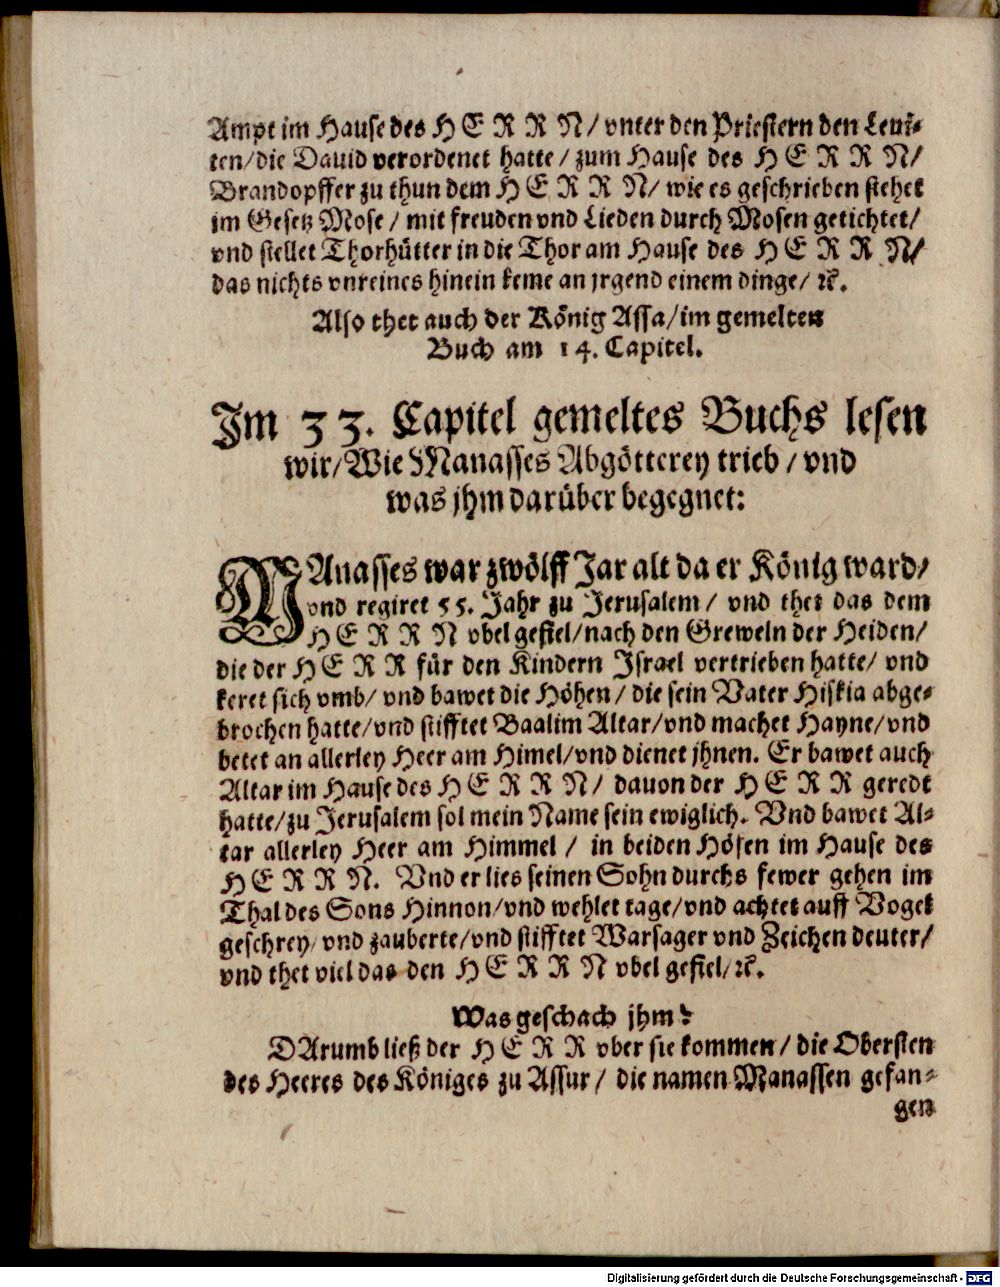 Ampt im Hause des HERRN/ vnter den Priestern den Leui-
ten/ die Dauid verordenet hatte/ zum Hause des HERRN/
Brandopffer zu thun dem HERRN/ wie es geschrieben stehet
im Gesetz Mose/ mit freuden vnd Lieden durch Mosen getichtet/
vnd stellet Thorhütter in die Thor am Hause des HERRN/
das nichts vnreines hinein keme an jrgend einem dinge/ ꝛc.
Also thet auch der König Assa/ im gemelten
Buch am 14. Capitel.
Im 33. Capitel gemeltes Buchs lesen
wir/ Wie Manasses Abgötterey trieb/ vnd
was jhm darüber begegnet:
MAnasses war zwölff Jar alt da er König ward/
vnd regiret 55. Jahr zu Jerusalem/ vnd thet das dem
HERRN vbel gefiel/ nach den Greweln der Heiden/
die der HERR für den Kindern Israel vertrieben hatte/ vnd
keret sich vmb/ vnd bawet die Höhen/ die sein Vater Hiskia abge-
brochen hatte/ vnd stifftet Baalim Altar/ vnd machet Hayne/ vnd
betet an allerley Heer am Himel/ vnd dienet jhnen. Er bawet auch
Altar im Hause des HERRN/ dauon der HERR geredt
hatte/ zu Jerusalem sol mein Name sein ewiglich. Vnd bawet Al-
tar allerley Heer am Himmel/ in beiden Höfen im Hause des
HERRN. Vnd er lies seinen Sohn durchs fewer gehen im
Thal des Sons Hinnon/ vnd wehlet tage/ vnd achtet auff Vogel
geschrey/ vnd zauberte/ vnd stifftet Warsager vnd Zeichen deuter/
vnd thet viel das den HERRN vbel gefiel/ ꝛc.
Was geschach jhm?
DArumb ließ der HERR vber sie kommen/ die Obersten
des Heeres des Königes zu Assur/ die namen Manassen gefan-
gen
Digitalisierung gefördert durch die Deutsche Forschungsgemeinschaft - DFG